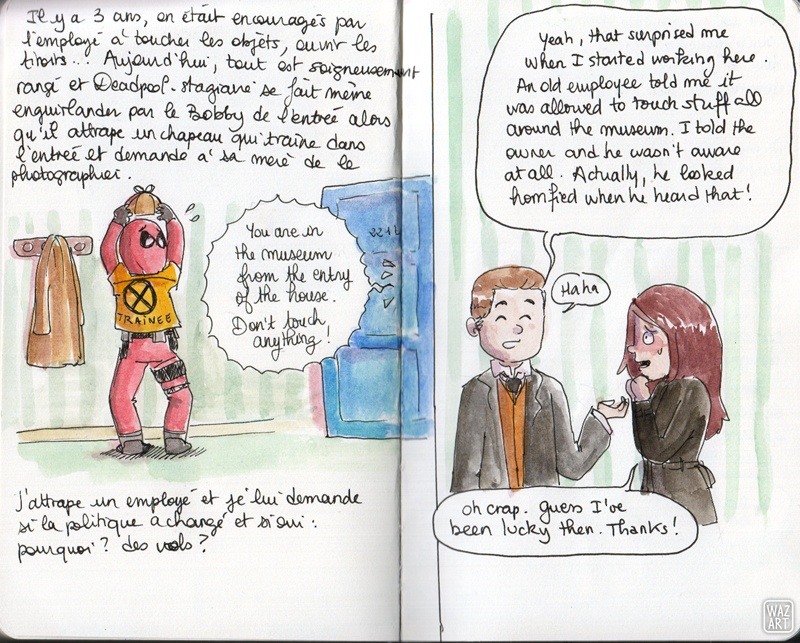 Il y a 3 ans, on était encouragés par
l'employé à toucher les objets, ouvrir les
tiroirs... Aujourd'hui, tout est soigneusement
rangé et Deadpool-stagiaire se fait même
enguirlander par le Bobby de l'entrée alors
qu'il attrape un chapeau qui traîne dans
l'entrée et demande à sa mère de le
photographier.
You are in
the museum
from the entry
of the house.
Don't touch
anything!
221b
TRAINEE
J'attrape un employé et je lui demande
si la politique a changé et si oui :
pourquoi ? des vols ?
Yeah, that surprised me
when I started working here.
An old employee told me it
was allowed to touch stuff all
around the museum. I told the
owner and he wasn't aware
at all. Actually, he looked
horrified when he heard that!
Haha
oh crap. Guess I've
been lucky then. Thanks!
WAZ
ART